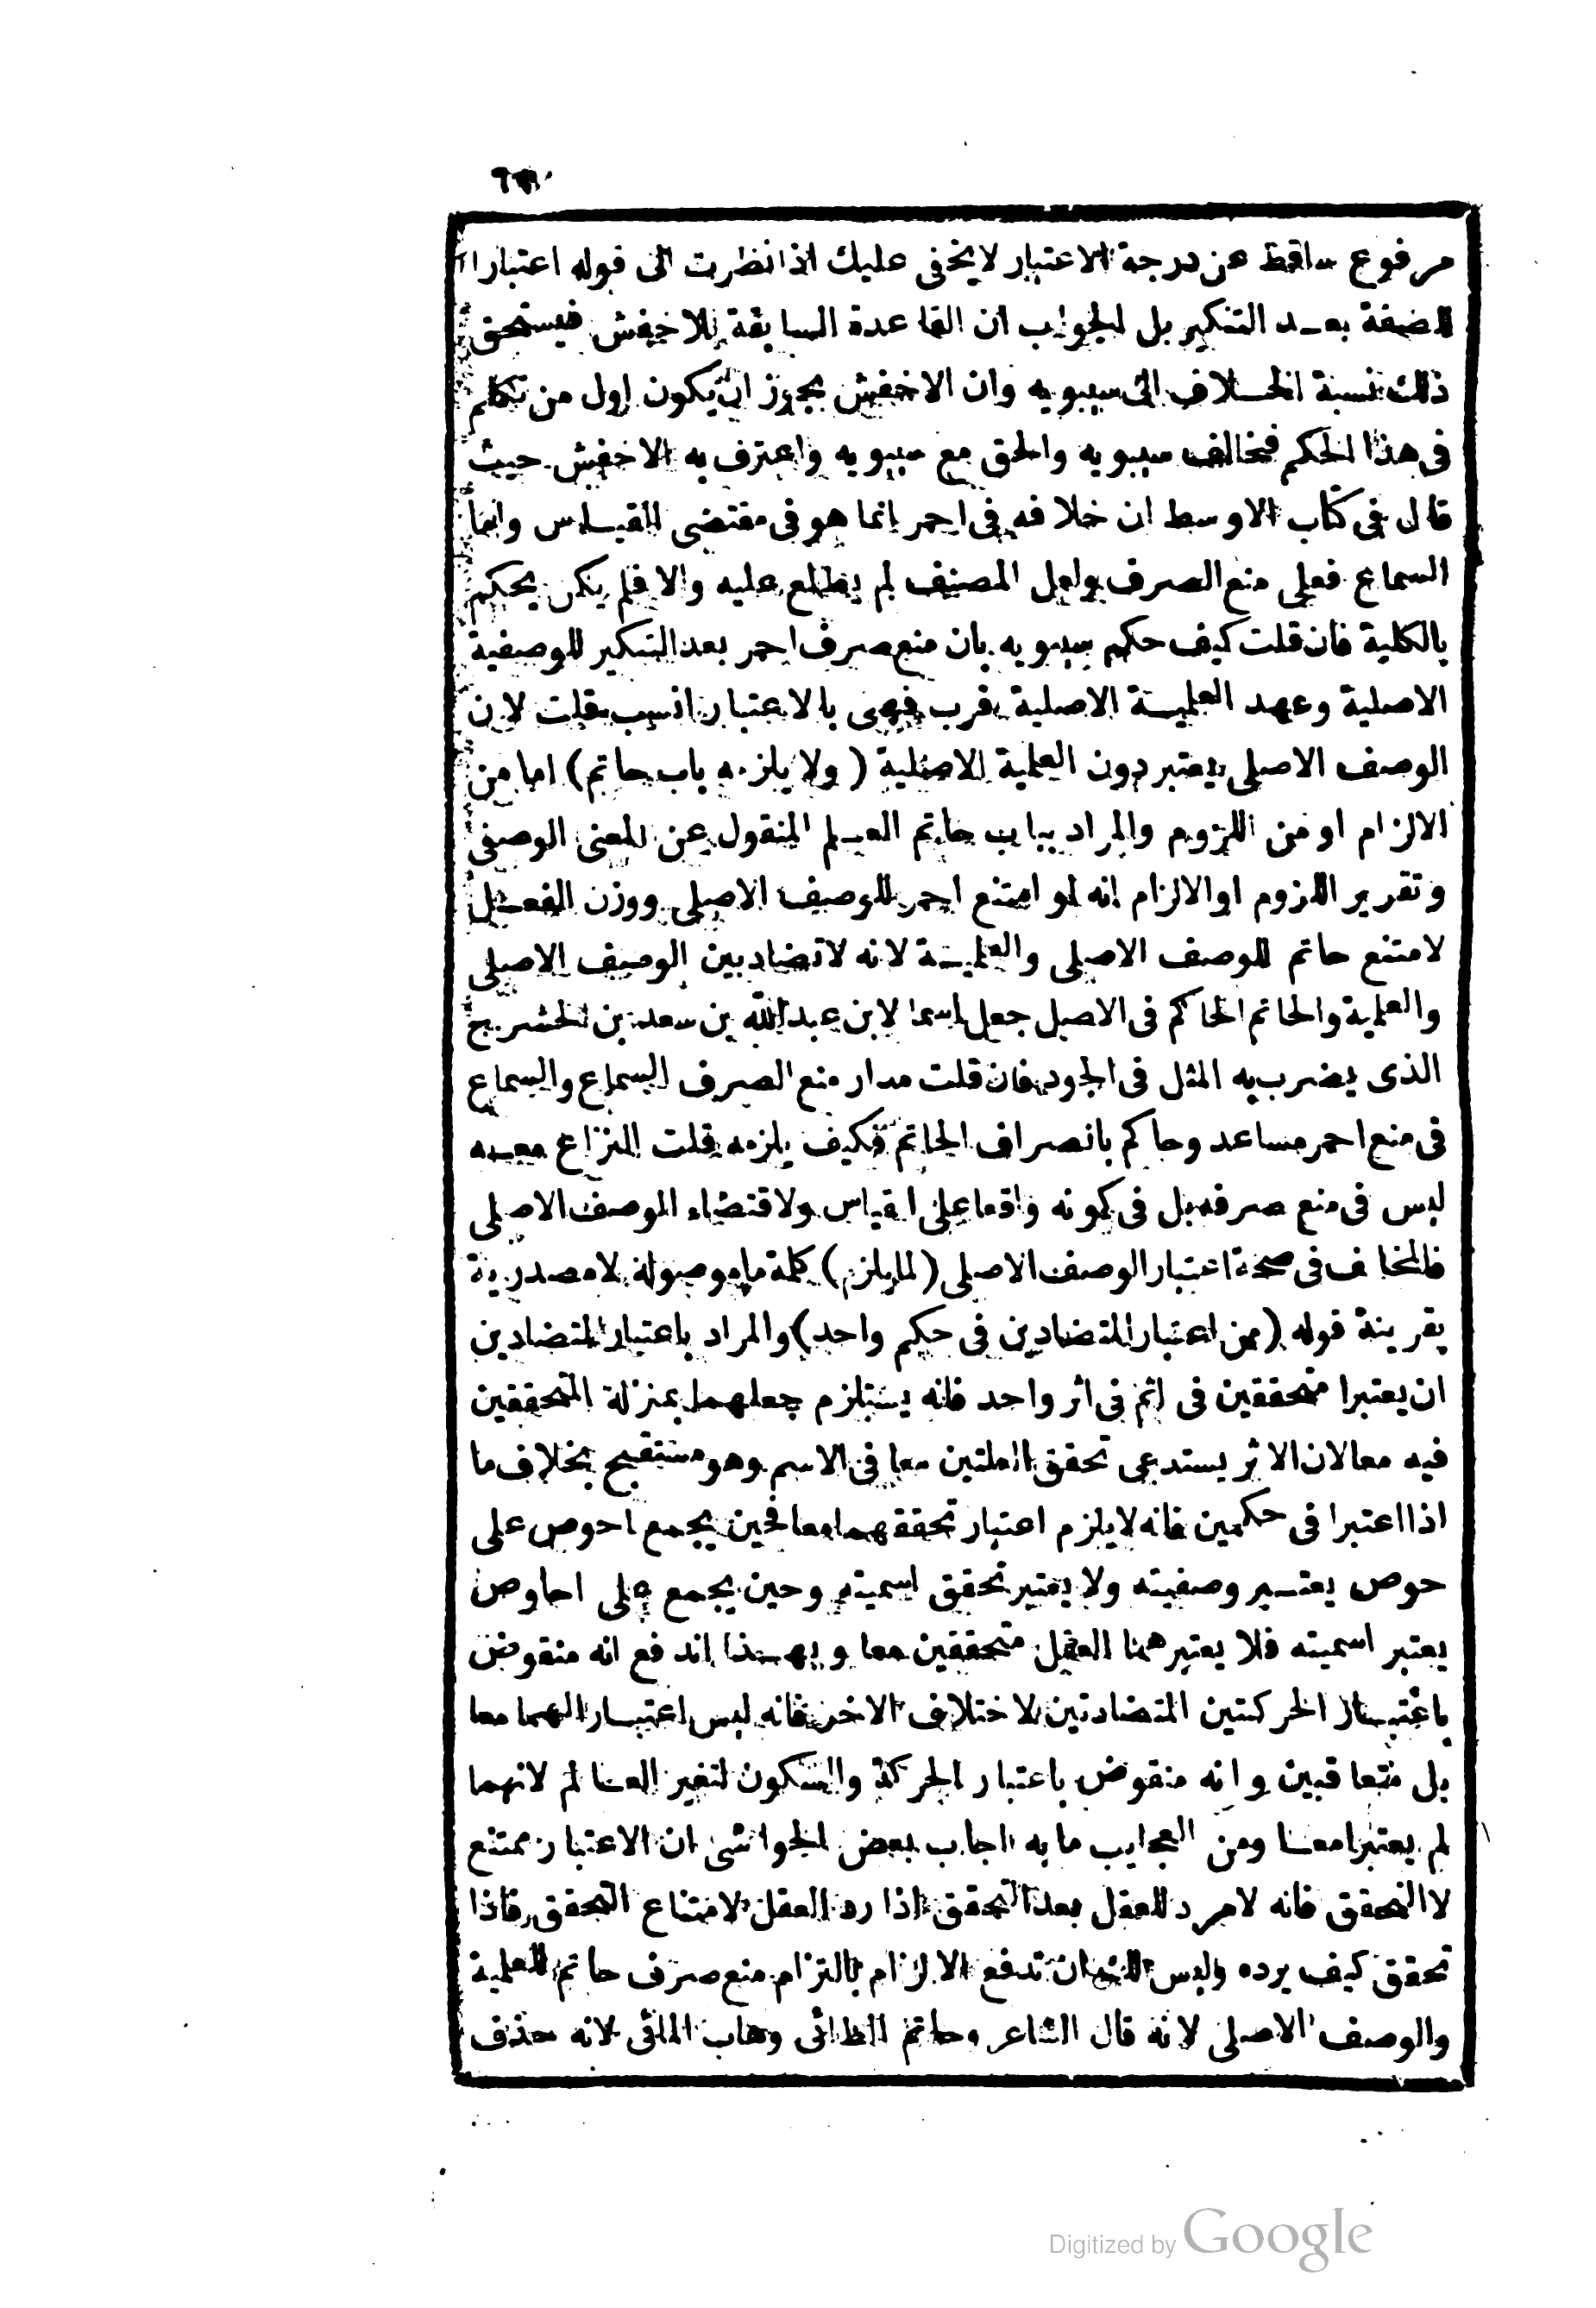 مرفوع ساقط عن درجة الاعتبار لايخفى عليك اذا نظرت الى قوله اعتبارا
للصفة بعد التنكير بل الجواب ان القاعدة السابقة للاخفش فيستحق
ذلك نسبة الخلاف الى سيبويه وان الاخفش يجوز ان يكون اول من تكلم
فى هذا الحكم فخالف سيبويه والحق مع سيبويه واعترف به الاخفش حيث
قال فى كتاب الاوسط ان خلافه فى احمر انما هو فى مقتضى القياس واما
السماع فعلى منع الصرف ولعل المصنف لم يطلع عليه والا فلم يكن يحكم
بالكلية فان قلت كيف حكم سيبويه بان منع صرف احمر بعد التنكير للوصفية
الاصلية وعهد العلمية الاصلية قرب فهى بالاعتبار انسب قلت لان
الوصف الاصلى يعتبر دون العلمية الاصلية (ولايلزمه باب حاتم) اما من
الالزام او من اللزوم والمراد بباب حاتم العلم المنقول عن المعنى الوصفى
وتقرير اللزوم او الالزام انه لو امتنع احمر للوصف الاصلى ووزن الفعل
لامتنع حاتم للوصف الاصلى والعلمية لانه لاتضاد بين الوصف الاصلى
والعلمية والحاتم الحاكم فى الاصل جعل اسما لابن عبدالله بن سعد بن الحشرج
الذى يضرب به المثل فى الجود فان قلت مدار منع الصرف السماع والسماع
فى منع احمر مساعد وحاكم بانصراف الحاتم فكيف يلزمه قلت النزاع معه
ليس فى منع صرفه بل فى كونه واقعا على القياس ولاقتضاء الوصف الاصلى
فالمخالف فى صحة اعتبار الوصف الاصلى (لما يلزم) كلمة ما موصولة لامصدرية
بقرينة قوله (من اعتبار المتضادين فى حكم واحد) والمراد باعتبار المتضادين
ان يعتبرا متحققين فى اثم فى اثر واحد فانه يستلزم جعلهما بمنزلة المتحققين
فيه معا لان الاثر يستدعى تحقق العلتين معا فى الاسم وهو مستقبح بخلاف ما
اذا اعتبرا فى حكمين فانه لايلزم اعتبار تحققهما معا فحين يجمع احوص على
حوص يعتبر وصفيته ولا يعتبر تحقق اسميته وحين يجمع على احاوص
يعتبر اسميته فلا يعتبر هما العقل متحققين معا وبهذا اندفع انه منقوض
باعتبار الحركتين المتضادتين لاختلاف الاخر فانه ليس اعتبارالهما معا
بل متعاقبين وانه منقوض باعتبار الحركة والسكون لتغير العالم لانهما
لم يعتبرا معا ومن العجايب مابه اجاب بعض الحواشى ان الاعتبار ممتنع
لاالتحقق فانه لامرد للعقل بعد التحقق اذا رد العقل لامتناع التحقق فاذا
تحقق كيف يرده وليس لك ان تدفع الالزام بالتزام منع صرف حاتم للعلمية
والوصف الاصلى لانه قال الشاعر وحاتم الطائى وهاب المائى لانه حذف
Digitized by Google